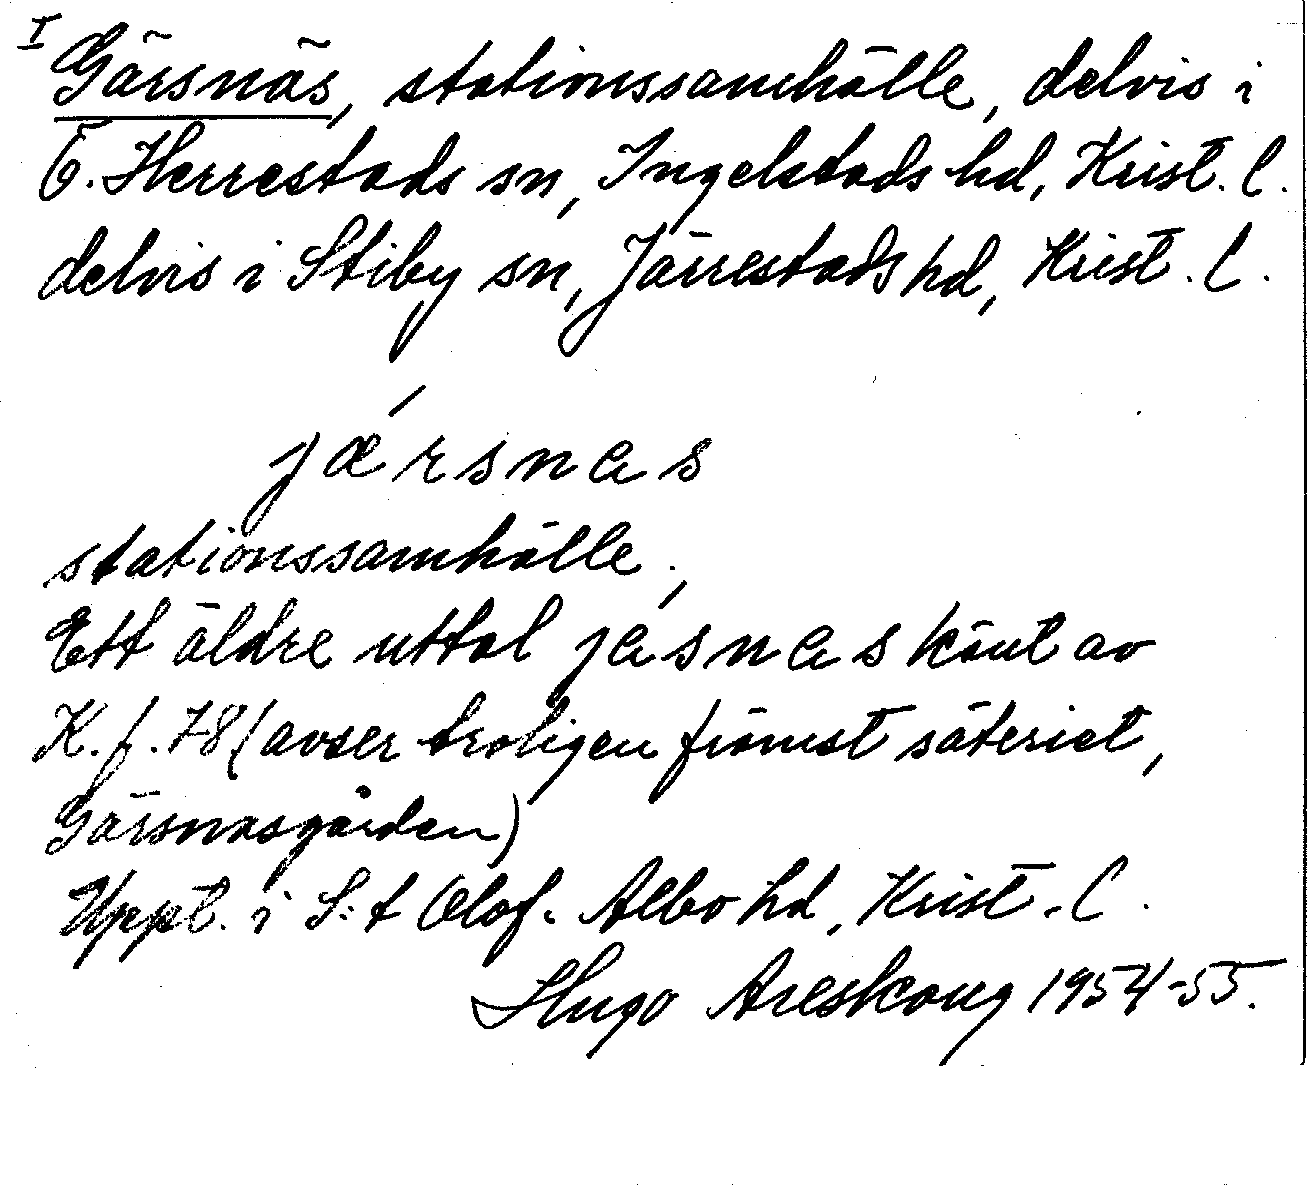 I Gärsnäs, stationssamhälle, delvis i
Ö. Herrestads sn, Ingelstads hd, Krist. l.
delvis i Stiby sn, Järrestads hd, Krist. l.
jæ´rsnas
stationssamhälle.
Ett äldre uttal ja´snas känt av
K. f. 78 (avser troligen främst säteriet,
Gärsnäsgården)
Uppt. i S:t Olof. Albo hd, Krist. l.
Hugo Areskoug 1954-55.